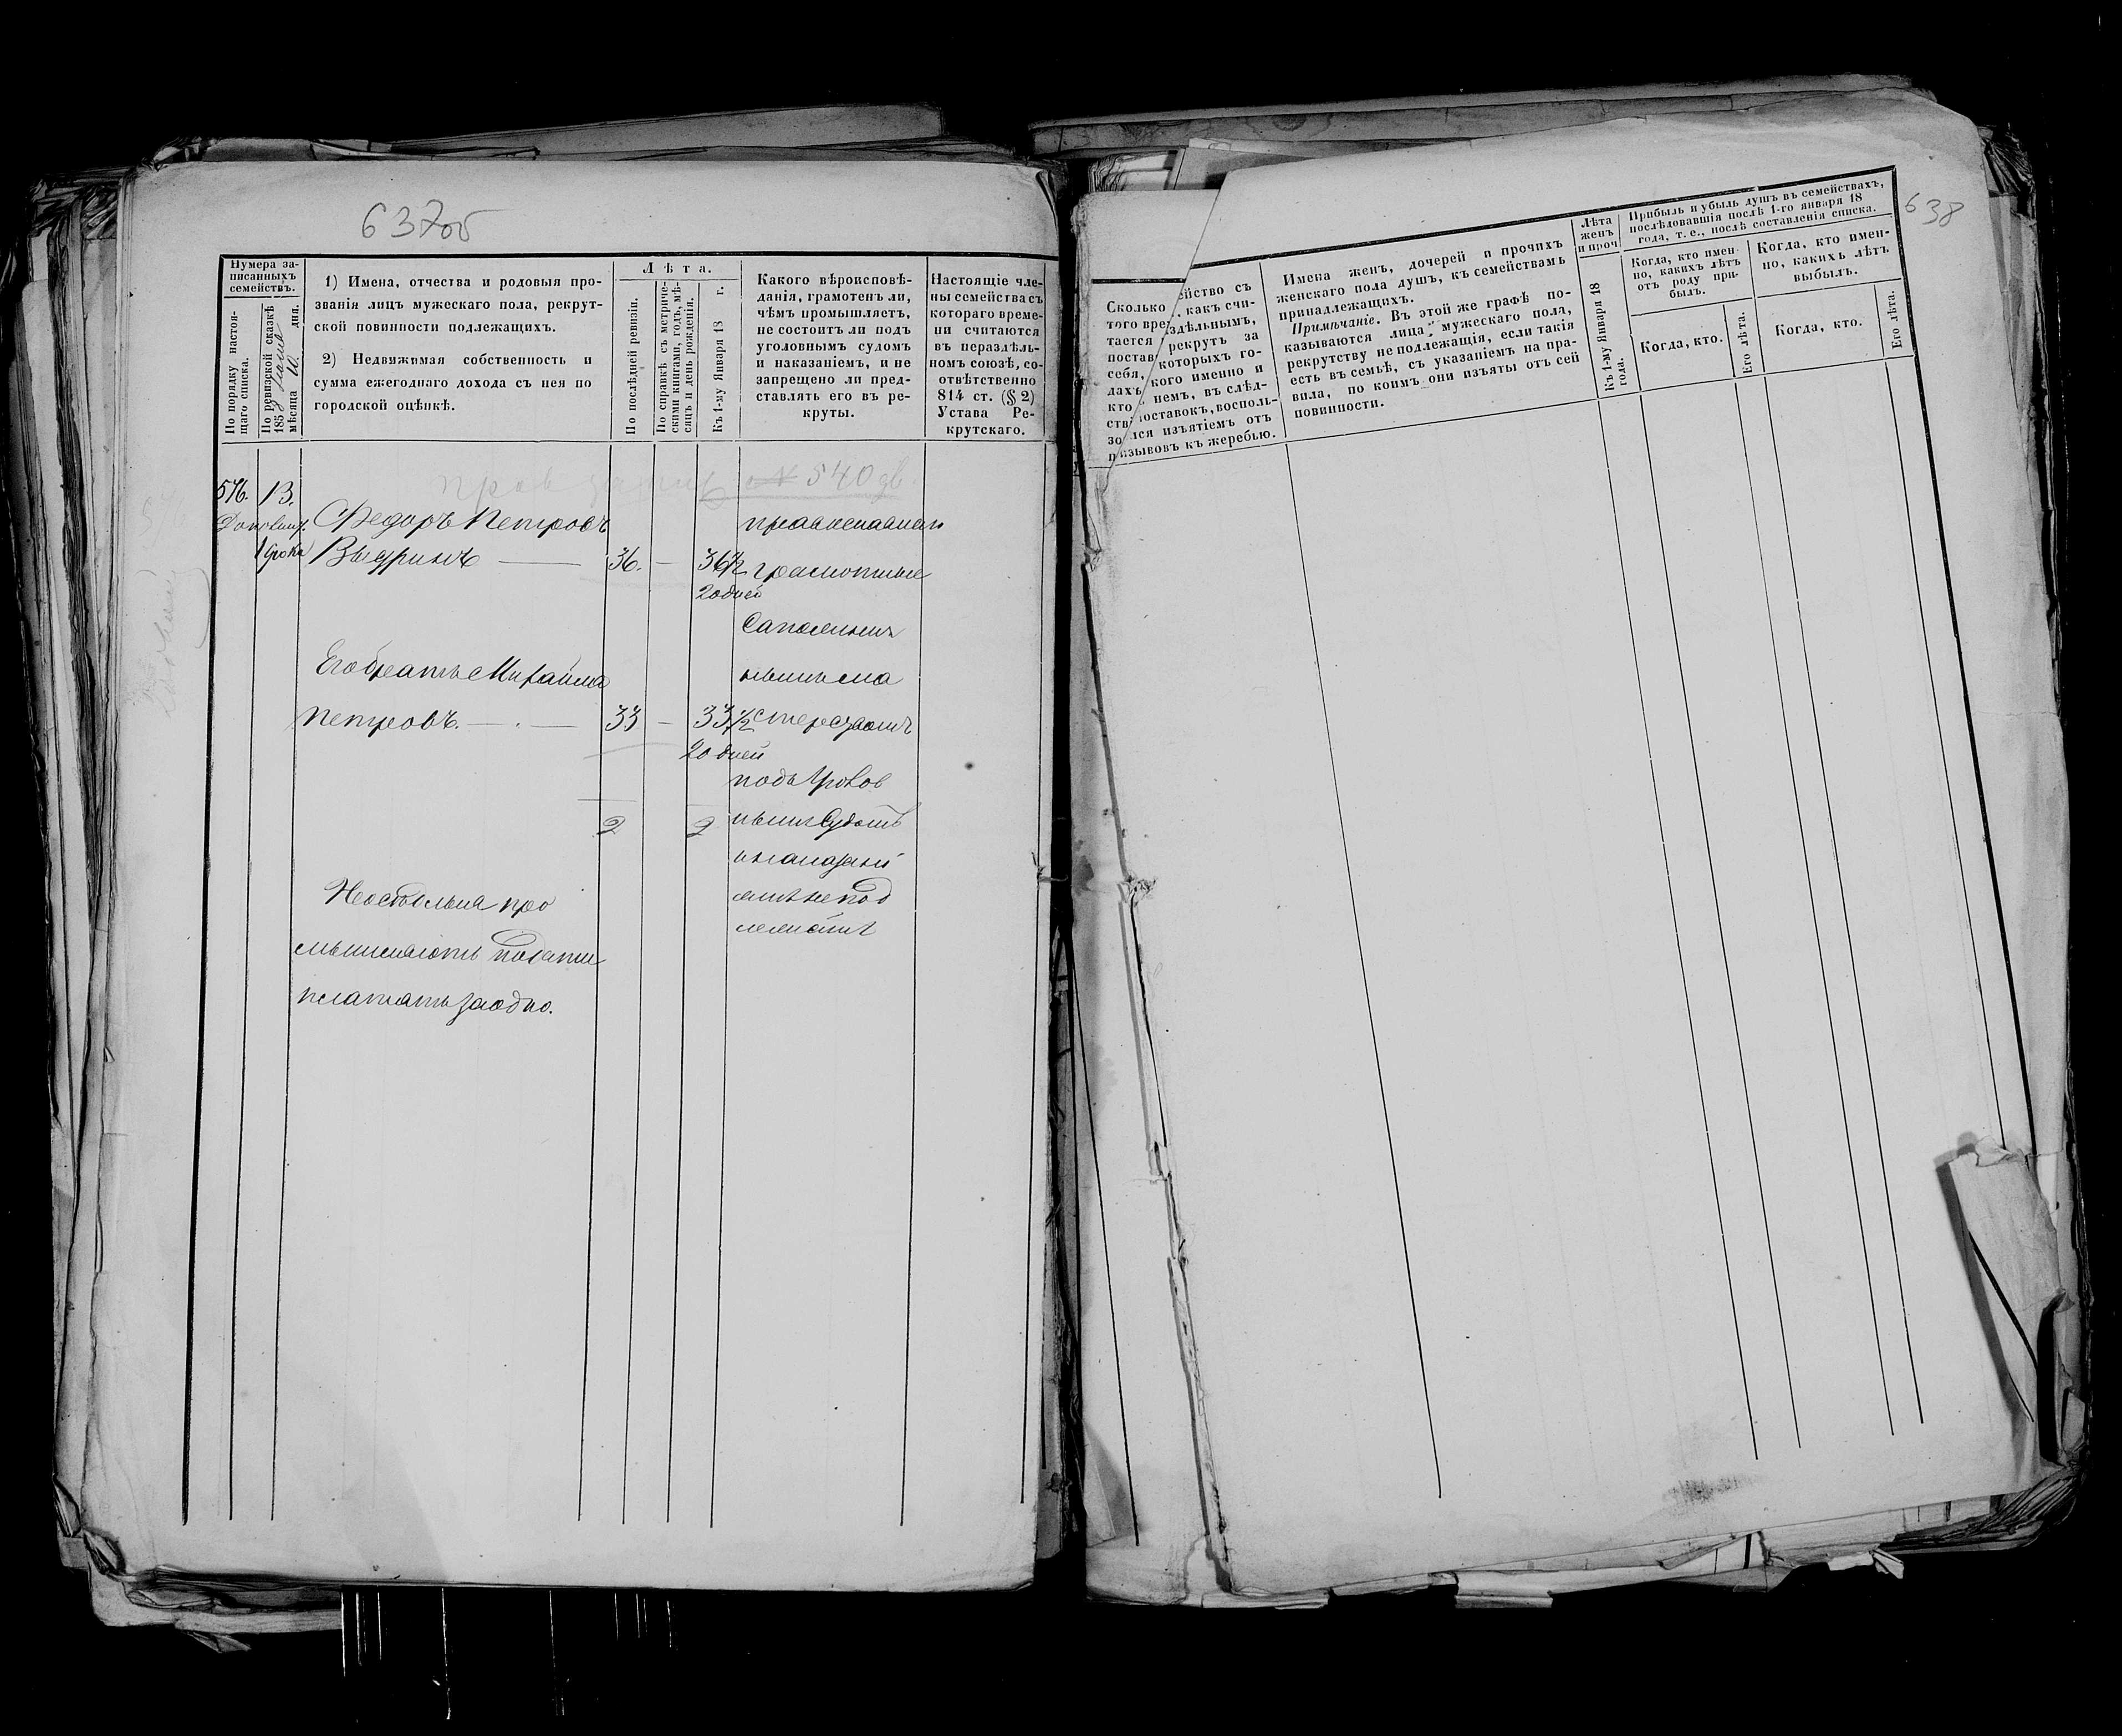 637об
Нумера за-
писанныхъ
семействъ.
По порядку настоя-
щаго списка.
По ревизской сказкѣ
1858
мѣсяца 10. дня.
1) Имена, отчества и родовыя про-
званія лицъ мужескаго пола, рекрут-
ской повинности подлежащихъ.
2) Недвижимая собственность и
сумма ежегоднаго дохода съ нея по
городской оцѣнкѣ.
Лѣта.
По послѣдней ревизіи.
По справкѣ съ метриче-
скими книгами, годъ, мѣ-
сяцъ и день рожденія.
Къ 1-му Января 18 г.
Какого вѣроисповѣ-
данія, грамотенъ ли,
чѣмъ промышляетъ,
не состоитъ ли подъ
уголовнымъ судомъ
и наказаніемъ, и не
запрещено ли пред-
ставлять его въ ре-
круты.
Настоящіе чле-
ны семейства съ
котораго време-
ни считаются
въ нераздѣль-
номъ союзѣ, со-
отвѣтственно
814 ст. (§ 2)
Устава Ре-
крутскаго.
№ 540 дв
576. 13.
Федоръ Петровъ
Выдринъ — 36. — 36 1/2
20 дней
Его братъ Михайла
Петровъ. — 33 — 33 1/2
20 дней
2 2
православнаго
грамотные
сапожнымъ
мастерствомъ
подъ уголов
нымъ Судомъ
и наказані
емъ не под
лежатъ
про
мышляютъ подати
платятъ заодно.
638
Сколько
того вре
тается
постав
себя,
дахъ
кто
ств
зо
п
йство съ
, какъ счи-
здѣльнымъ,
рекрутъ за
которыхъ го-
кого именно и
немъ, въ слѣд-
поставокъ, восполь-
лся изъятіемъ отъ
изывовъ къ жеребью.
Имена женъ, дочерей и прочихъ
женскаго пола душъ, къ семействамъ
принадлежащихъ.
Примѣчаніе. Въ этой же графѣ по-
казываются лица мужескаго пола,
рекрутству не подлежащія, если такія
есть въ семьѣ, съ указаніемъ на пра-
вила, по коимъ они изъяты отъ сей
повинности.
Лѣта
женъ
и проч
Къ 1-му Января 18
года.
Прибыль и убыль душъ въ семействахъ,
послѣдовавшія послѣ 1-го января 18
года, т. е., послѣ составленія списка.
Когда, кто имен-
но, какихъ лѣтъ
отъ роду при-
былъ.
Когда, кто.
Его лѣта.
Когда, кто имен-
но, какихъ лѣтъ
выбылъ.
Когда, кто.
Его лѣта.